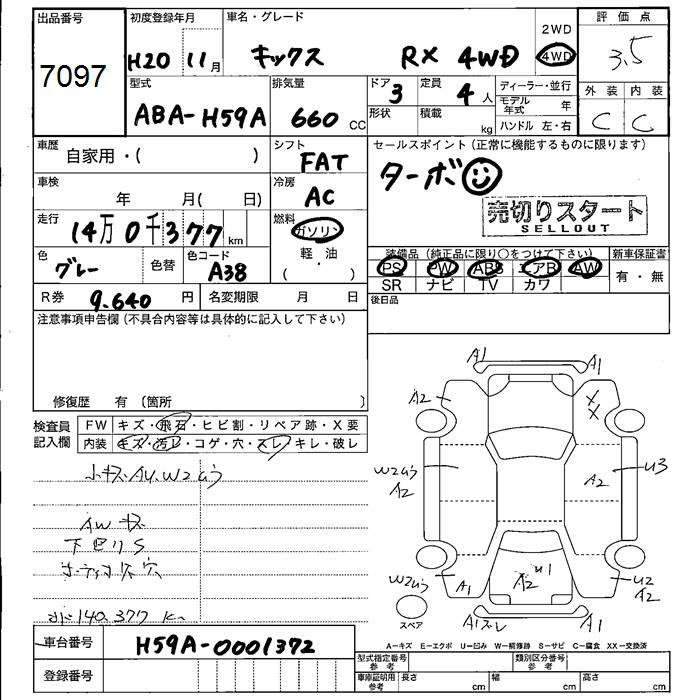 出品番号
7097
初度登録年月
H20 11月
車名・グレード
キックス RX 4WD
2WD
4WD
評価点
3.5
外装 内装
C C
型式
ABA-H59A
排気量
660 CC
ドア
3
形状
定員
4人
積載
kg
ディーラー・並行
モデル年式 年
ハンドル 左・右
車歴
自家用・( )
シフト
FAT
セールスポイント(正常に機能するものに限ります)
ターボ
売切りスタート
SELLOUT
車検
年 月( 日)
冷房
AC
走行
14万0千377km
燃料
ガソリン
軽・油
( ・ )
色
グレー
色替
色コード
A38
装備品(純正品に限り○をつけて下さい)
PS PW ABS エアB AW
SR ナビ TV カワ
新車保証書
有・無
R券
9.640 円
名変期限 月 日
後日品
注意事項申告欄(不具合内容等は具体的に記入して下さい)
修復歴 有〔箇所 〕
検査員
記入欄
FW キズ・飛石・ヒビ割・リペア跡・X要
内装 キズ・汚レ・コゲ・穴・スレ・キレ・破レ
小キズ AU.W2
AW キズ
下サビS
140.377 K
A1 A1
A2
X
X
W2
A2
A2
U3
W2
A1
U1
A2
U2
A2
スペア
A1スレ A1
A-キズ E-エクボ U-凹み W-補修跡 S-サビ C-腐食 XX-交換済
車台番号
H59A-0001372
登録番号
型式指定番号
参考
類別区分番号
参考
車庫証明用
参考
長さ cm
幅 cm
高さ cm